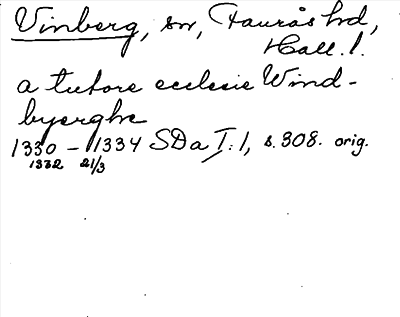 Vinberg, sn, Faurås hd,
Hall. l.
a tutore ecclesie Wind-
byerghe
1330 - 1334 SDa I: 1, s. 308. orig.
1332 21/3